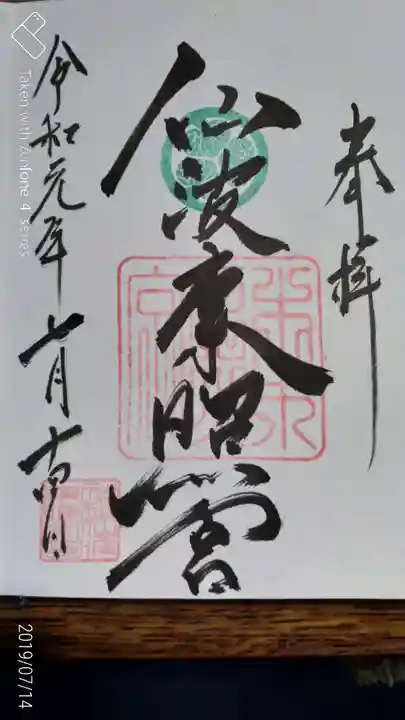 奉拝
仙波東照宮
令和元年七月十四日
Taken with zunfone 4 series
2019/07/14